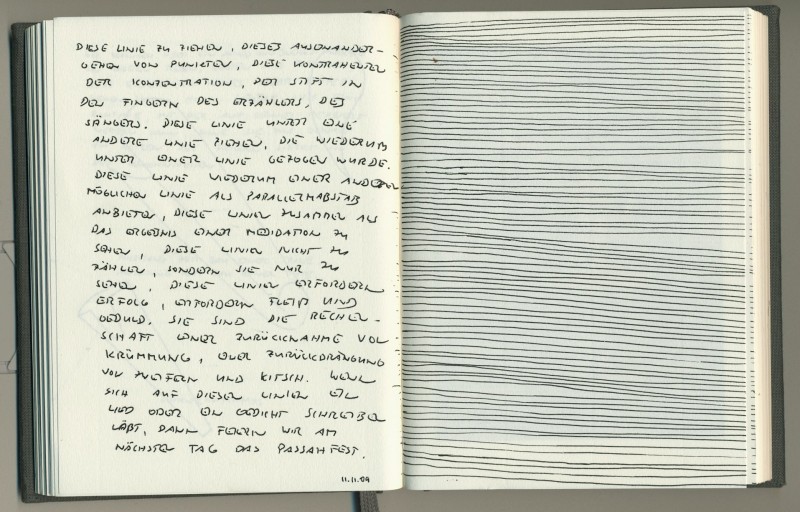 DIESE LINIE ZU ZIEHEN, DIESES AUSEINANDER-
GEHEN VON PUNKTEN, DIESE KONTRAHENTEN
DER KONZENTRATION, DER STIFT IN
DEN FINGERN DES ERZÄHLERS, DES
SÄNGERS. DIESE LINIE UNTER EINE
ANDERE LINIE ZIEHEN, DIE WIEDERUM
UNTER EINER LINIE GEZOGEN WURDE.
DIESE LINIE WIEDERUM EINER ANDEREN
MÖGLICHEN LINIE ALS PARALLELMAßSTAB
ANBIETEN, DIESE LINIEN ZUSAMMEN ALS
DAS ERGEBNIS EINER MEDIDATION ZU
SEHEN, DIESE LINIEN NICHT ZU
ZÄHLEN, SONDERN SIE NUR ZU
SEHEN, DIESE LINIEN ERFORDERN
ERFOLG, ERFORDERN FLEIß UND
GEDULD. SIE SIND DIE RECHEN-
SCHAFT EINER ZURÜCKNAHME VON
KRÜMMUNG, EINER ZURÜCKDRÄNGUNG
VON ZWEIFELN UND KITSCH. WENN
SICH AUF DIESEN LINIEN EIN
LIED ODER EIN GEDICHT SCHREIBEN
LÄßT, DANN FEIERN WIR AM
NÄCHSTEN TAG DAS PASSAHFEST.
11.11.09